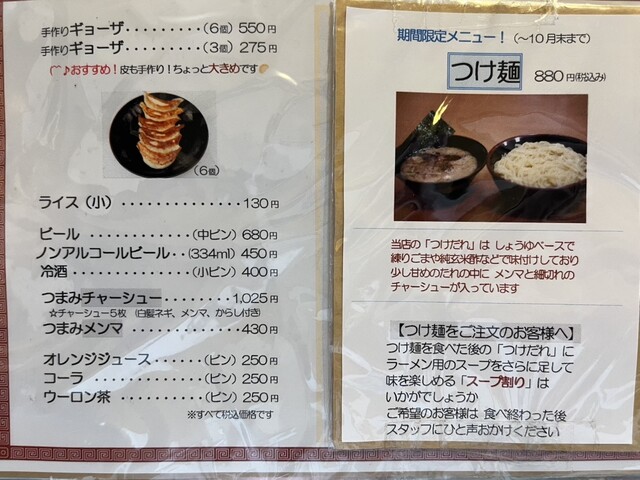 手作りギョーザ・・・・・・・・・（6個）550円
手作りギョーザ・・・・・・・・・（3個）275円
♪おすすめ！皮も手作り！ちょっと大きめです
（6個）
ライス（小）・・・・・・・・・・・・・・130円
ビール・・・・・・・・・・・・（中ビン）680円
ノンアルコールビール・・（334ml）450円
冷酒・・・・・・・・・・・・・（小ビン）400円
つまみチャーシュー・・・・・・・・1,025円
☆チャーシュー5枚　（白髪ネギ、メンマ、からし付き）
つまみメンマ・・・・・・・・・・・・・430円
オレンジジュース・・・・・・（ビン）250円
コーラ・・・・・・・・・・・・（ビン）250円
ウーロン茶・・・・・・・・・・（ビン）250円
※すべて税込価格です
期間限定メニュー！（～10月末まで）
つけ麺　880円（税込み）
当店の「つけだれ」は しょうゆベースで
練りごまや純玄米酢などで味付けしており
少し甘めのたれの中に メンマと細切れの
チャーシューが入っています
【つけ麺をご注文のお客様へ】
つけ麺を食べた後の「つけだれ」に
ラーメン用のスープをさらに足して
味を楽しめる「スープ割り」は
いかがでしょうか
ご希望のお客様は 食べ終わった後
スタッフにひと声おかけください